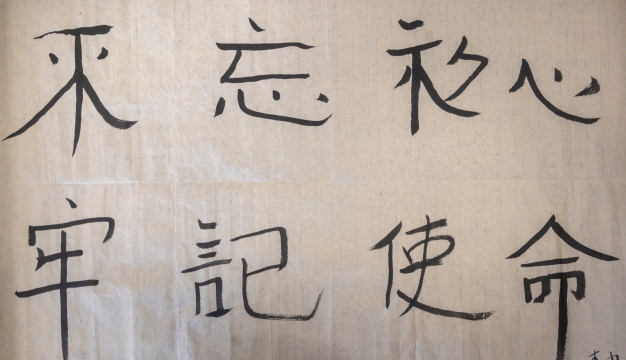 来忘初心
牢記使命